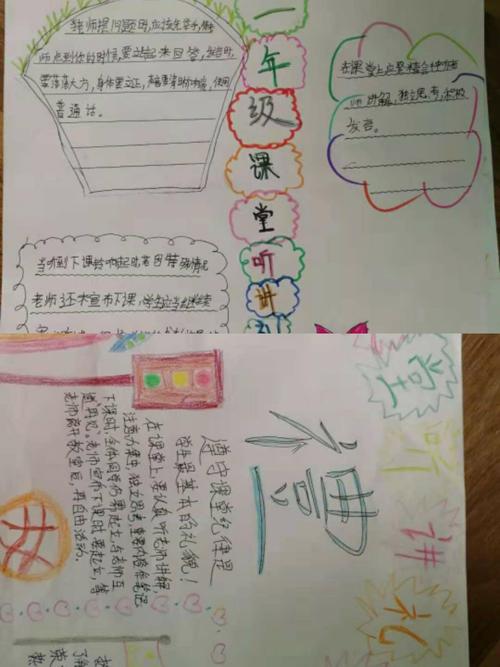 老师提问题时,应该先举手,
师点到你的时候,要站起来回答,发言时,
要落落大方,身体要立正,声音要清晰响亮,使用
普通话。
一
年
级
课
堂
听
讲
礼
在课堂上应要集合
师讲解,独立思考,积极
发言。
当听到下课铃响起时常因特殊情况
老师还未宣布下课,学生应当继续
堂
听
讲
礼
德
遵守课堂纪律是
学生最基本的礼貌!
在课堂上,要认真听老师讲解,
注意力集中,独立思考,重要内容作笔记
下课时,全体同学仍需起立,与老师互
道"再见",老师宣布下课时,要起立,等
老师离开教室后,再自由活动。